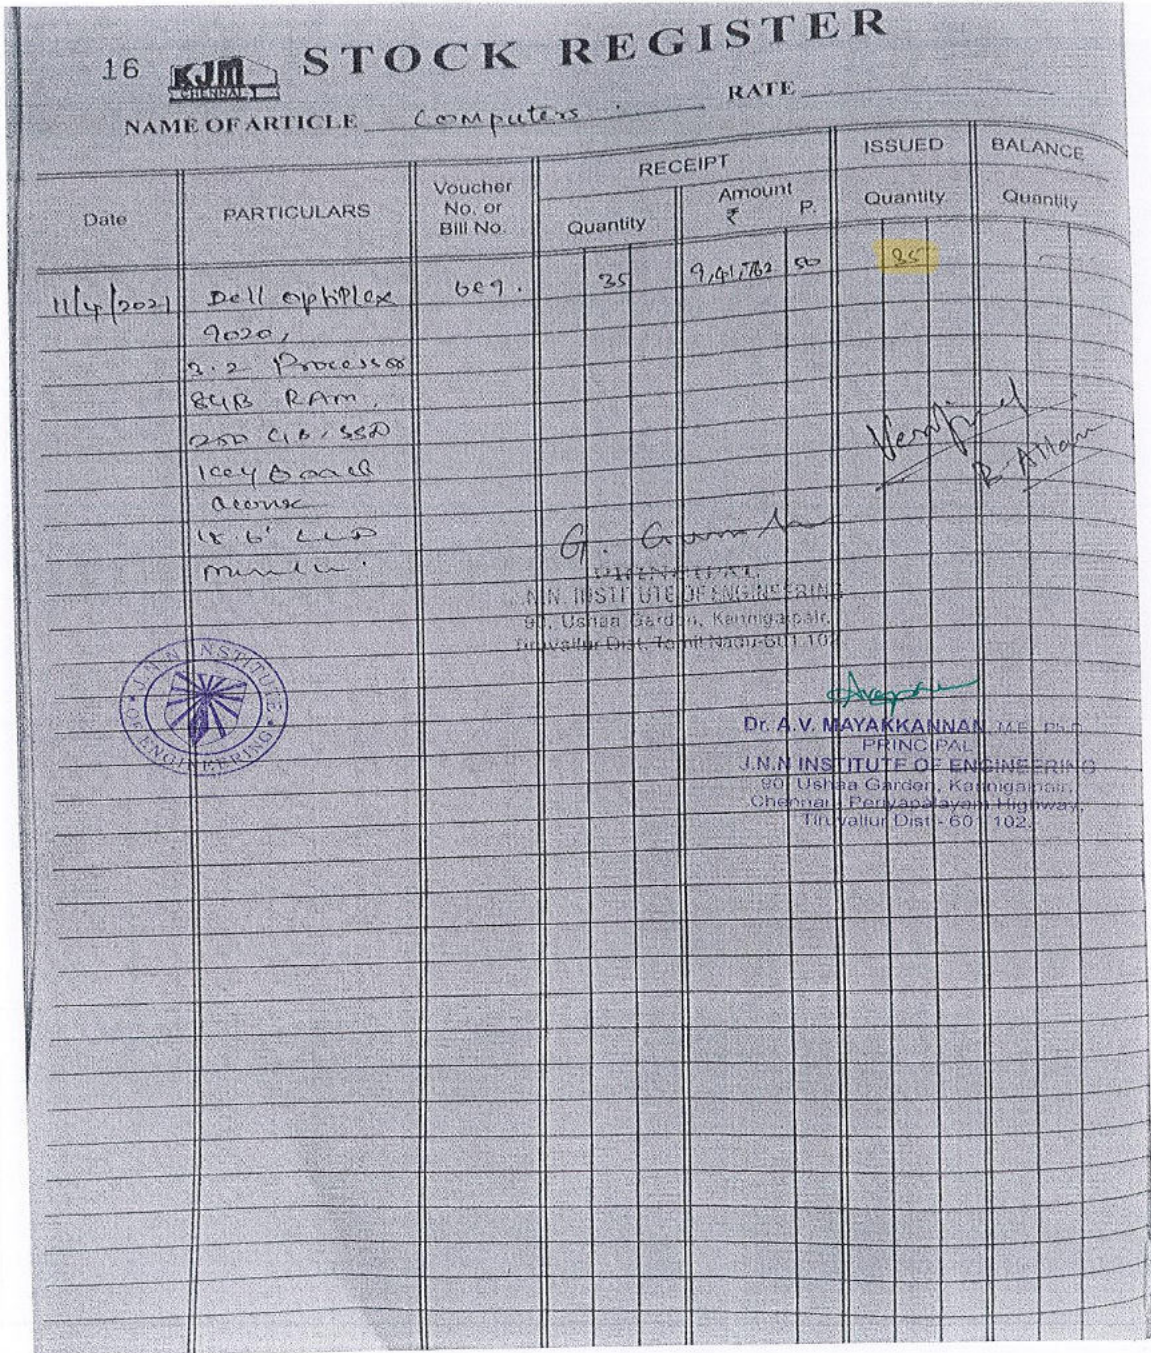 16 KJM CHENNAI STOCK REGISTER
NAME OF ARTICLE Computers RATE
Date PARTICULARS Voucher No. or Bill No. RECEIPT ISSUED BALANCE
Quantity Amount ₹ P. Quantity Quantity
11/4/2021 Dell optiplex 609. 35 9,41,762 50 35
9020,
3.2 Processor
8GB RAM,
250 GB, SSD
Key Board
18.6" LCD
Verified
G.
PRINCIPAL
J.N.N. INSTITUTE OF ENGINEERING
90, Ushaa Garden, Kannigaipair,
Tiruvallur Dist, Tamil Nadu-601 102
J.N.N INSTITUTE OF ENGINEERING
Dr. A.V. MAYAKKANNAN M.E., Ph.D
PRINCIPAL
J.N.N INSTITUTE OF ENGINEERING
90, Ushaa Garden, Kannigaipair,
Chennai - Periyapalayam Highway,
Tiruvallur Dist - 601 102.